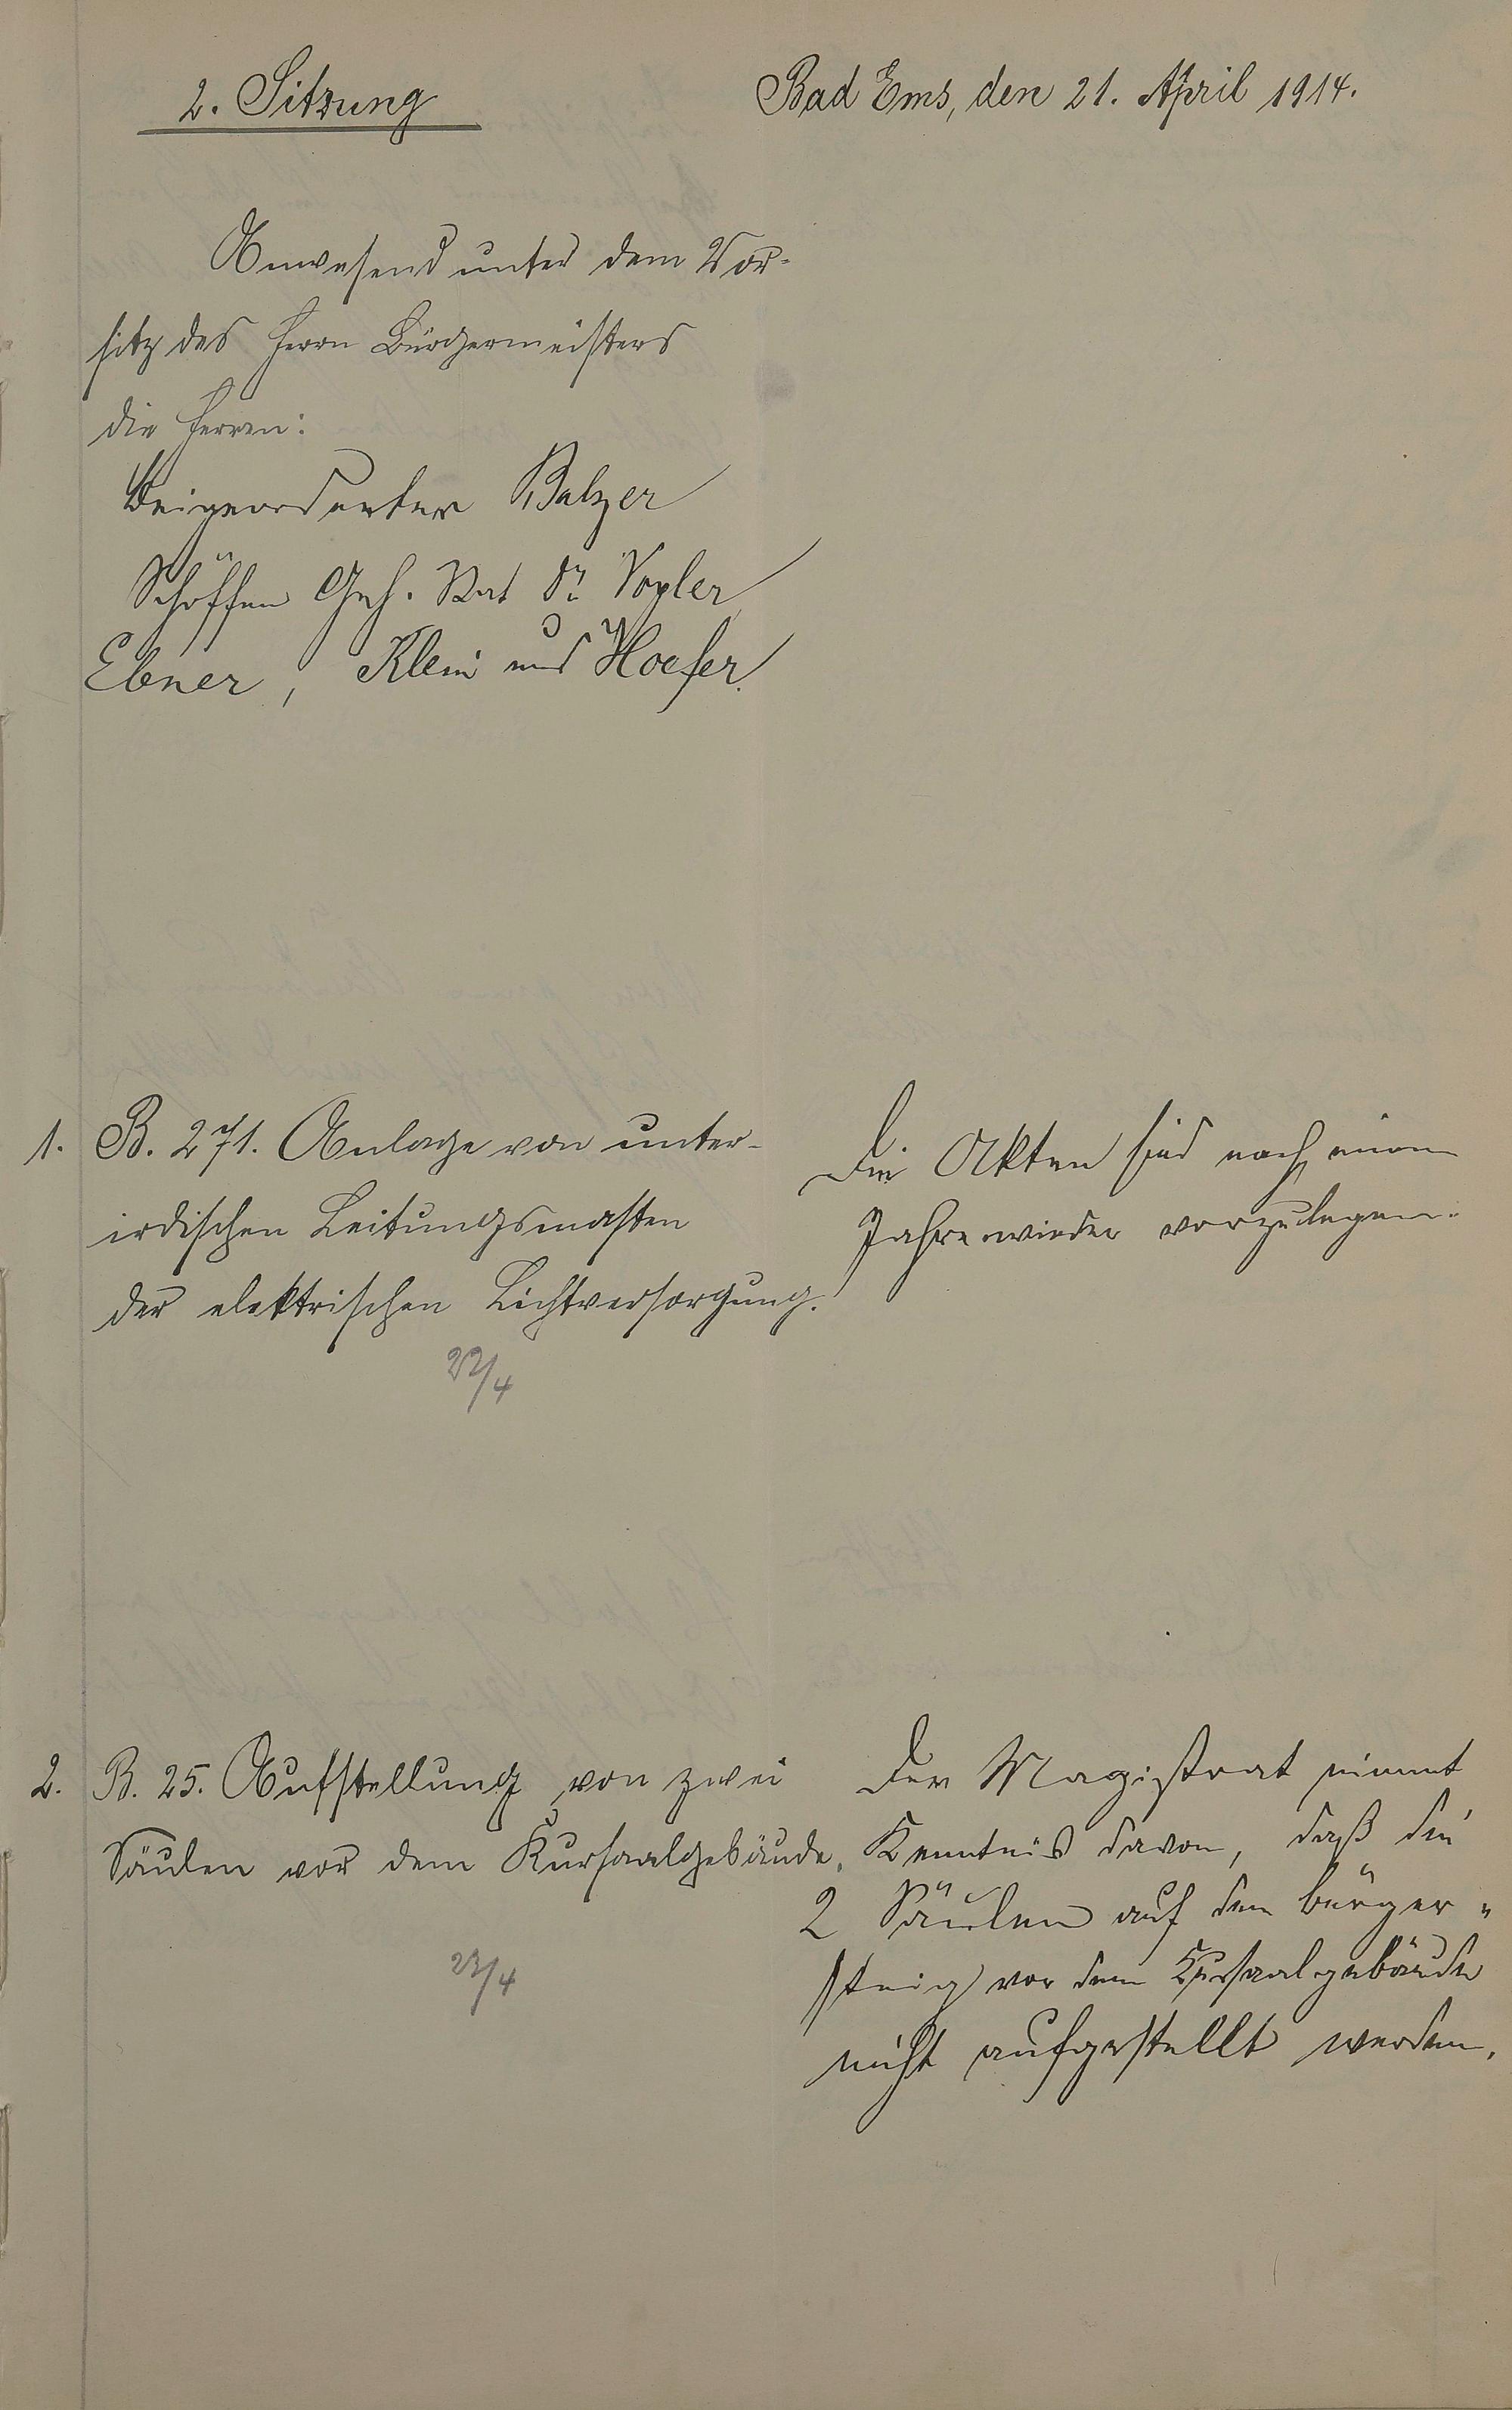 2. Sitzung
Bad Ems, den 21. April 1914.
Anwesend unter dem Vor-
sitz des Herrn Bürgermeisters
die Herren:
Beigeordneter Balzer
Schöffen Geh. Rat Dr. Vogler,
Ebner, Klein und Hoefer.
1. B. 271. Anlage von unter-
irdischen Leitungsmasten
der elektrischen Lichtversorgung.
22/4
Die Akten sind nach einem
Jahre wieder vorzulegen.
2. B. 25. Aufstellung von zwei
Säulen vor dem Kursaalgebäude.
23/4
Der Magistrat nimmt
Kenntnis davon, daß die
2 Säulen auf dem Bürger-
steig vor dem Kursaalgebäude
nicht aufgestellt werden.